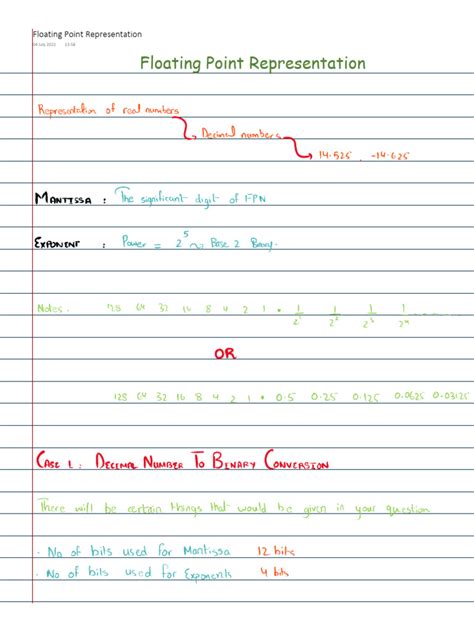 Floating Point Representation
13:58
Floating Point Representation
Representation of real numbers
Decimal numbers
14.525, -14.625
MANTISSA : The significant digit of FPN
EXPONENT : Power = 2^5 Base 2 Binary.
Notes: 128 64 32 16 8 4 2 1 • 1/2^1 1/2^2 1/2^3 1/2^4
OR
128 64 32 16 8 4 2 1 • 0.5 0.25 0.125 0.0625 0.03125
CASE 1 : DECIMAL NUMBER TO BINARY CONVERSION
There will be certain things that would be given in your question
. No of bits used for Mantissa 12 bits
. No of bits used for Exponents 4 bits